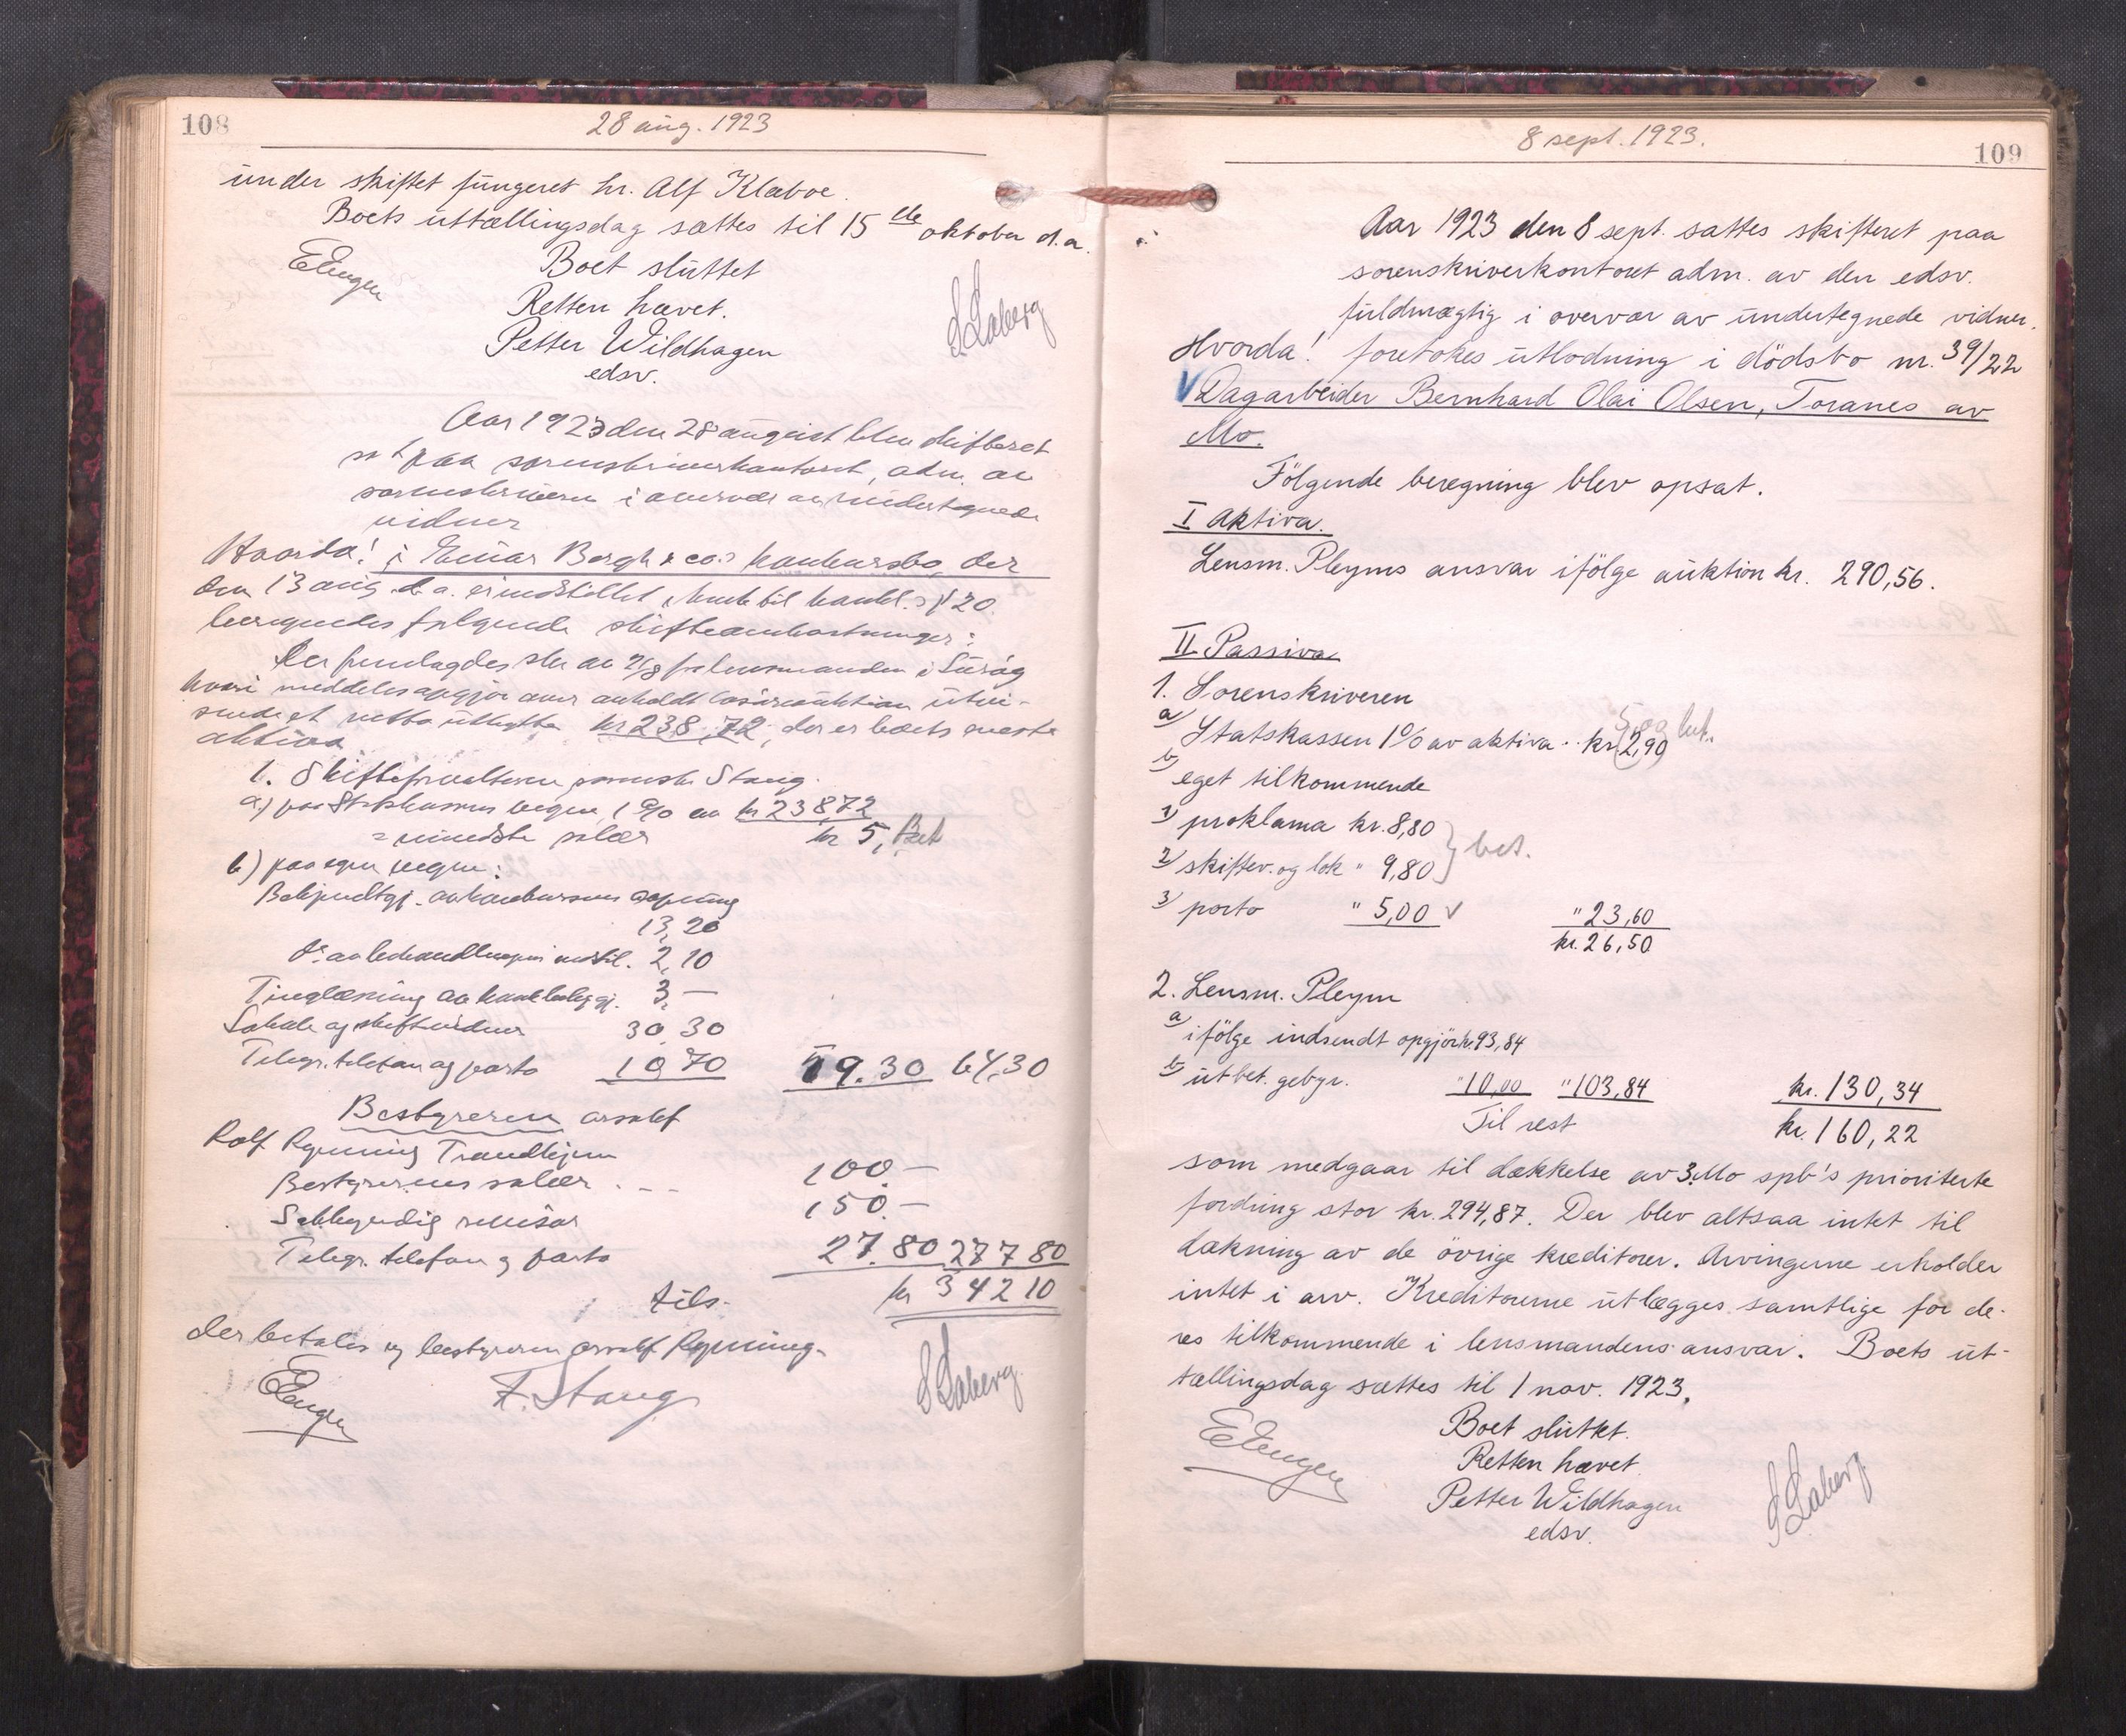 108
28 aug. 1923
under skiftet fungeret hr. Alf Klæboe.
Boets uttællingsdag sættes til 15de oktober d.a.
Boet sluttet
EEngen
Retten hævet.
S Laberg
Petter Wildhagen
edsv.
Aar 1923 den 28 august blev skifteret
sat paa sorenskriverkontoret, adm. av
sorenskriveren i overvær av undertegnede
vidner
Hvorda! i Einar Bergh & co.s konkursbo, der
den 13 aug. d.a. er indstillet, konk til konkl.s § 20.
beregnedes følgende skifteomkostninger:
Der fremlagdes skr. av 21/8 fra lensmanden i
hvori meddeles opgjør over avholdt løsøreauktion utvi-
sende et netto utbytte kr 238,72, der er boets eneste
aktiva
1. Skifteforvalteren, sorenskr. Stang.
a.) paa Statskassens vegne, 1 % av kr 238,72
= mindste salær kr 5,- Bet
b) paa egne vegne:
Bekjendtgj. av konkursens aapning
13,20
do. av behandlingens indstil. 2,10
Tinglæsning av konkbeslggj. 3,-
Lokale og skiftevidner 30,30
Telegr. telefon og porto 10,70 59.30 64,30
Bestyreren orsakf
Rolf Ryenning Trondhjem
Bestyrerens salær . - - 100.-
Sakkyndig revisor 150.-
Telegr. telefon og porto 27.80 277 80
tils. kr 342 10
der betales og bestyreren orsakf Ryenning.
EEngen
F. Stang
S Laberg
109
8 sept. 1923.
Aar 1923 den 8 sept. sattes skifteret paa
sorenskriverkontoret adm. av den edsv.
fuldmægtig i overvær av undertegnede vidner.
Hvorda! foretokes utlodning i dödsbo nr. 39/22
V Dagarbeider Bernhard Olai Olsen, Toranes av
Mo.
Fölgende beregning blev opsat.
I Aktiva.
Lensm. Pleyms ansvar ifölge auktion kr. 290,56.
II Passiva
1. Sorenskriveren
5,00 bet.
a) Statskassen 1 % av aktiva .. kr. (2,90)
b) eget tilkommende
1) proklama kr. 8,80
2) skiftev. og lok " 9,80 } bet.
3) porto " 5,00 V " 23,60
kr. 26,50
2. Lensm. Pleym
a) ifölge indsendt opgjör kr. 93,84
b) utbet. gebyr. " 10,00 " 103,84 kr. 130,34
Til rest kr. 160,22
som medgaar til dækkelse av 3. Mo spb's prioriterte
fordring stor kr. 294,87. Der blev altsaa intet til
dækning av de övrige kreditorer. Arvingerne erholder
intet i arv. Kreditorerne utlægges samtlige for de-
res tilkommende i lensmandens ansvar. Boets ut-
tællingsdag sættes til 1 nov. 1923.
Boet sluttet.
EEngen
Retten hævet
S Laberg
Petter Wildhagen
edsv.